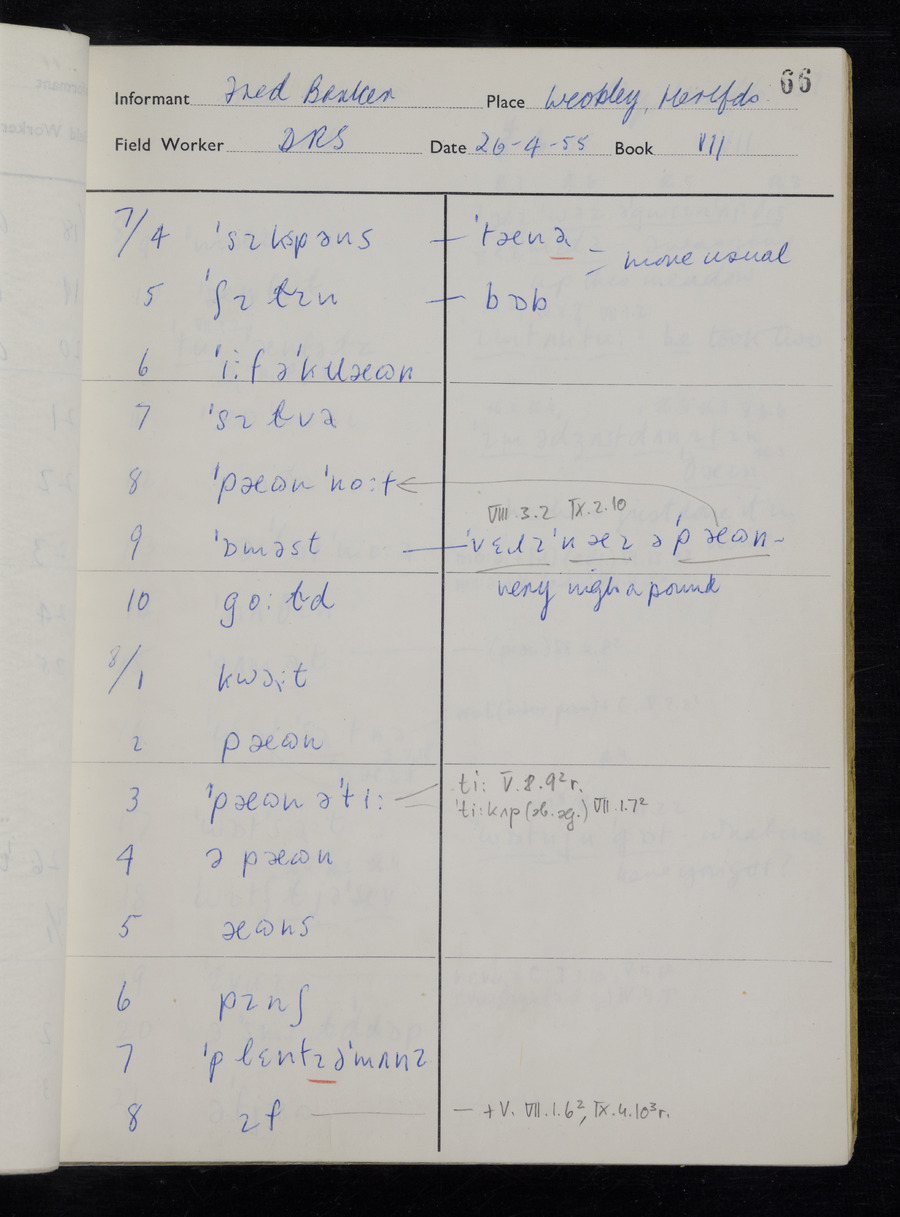 66
Informant Fred Barker Place Weobley, Herefds.
Field Worker DRS Date 26-4-55 Book VII
7/4 ˈsɪkspəns — ˈtænə
= more usual
5 ˈʃɪɫɪn — bɒb
6 ˈiːf əˈkɹəɷn
7 ˈsɪɫvə
8 ˈpəɷn ˈnoːt
VIII.3.2 IX.2.10
9 ˈɒməst — ˈvɛɹɪ ˈnəɪ ə ˈpəɷn -
very nigh a pound
10 goːɫd
8/1 kwəit
2 pəɷn
3 ˈpəɷn əˈtiː — tiː V.8.9²r.
ˈtiːkʌp (əb.əg.) VII.1.7²
4 ə pəɷn
5 əɷns
6 pɪnʃ
7 ˈplɛntɪ əˈmʌnɪ
8 ɪf — +V. VII.1.6², IX.4.10³r.